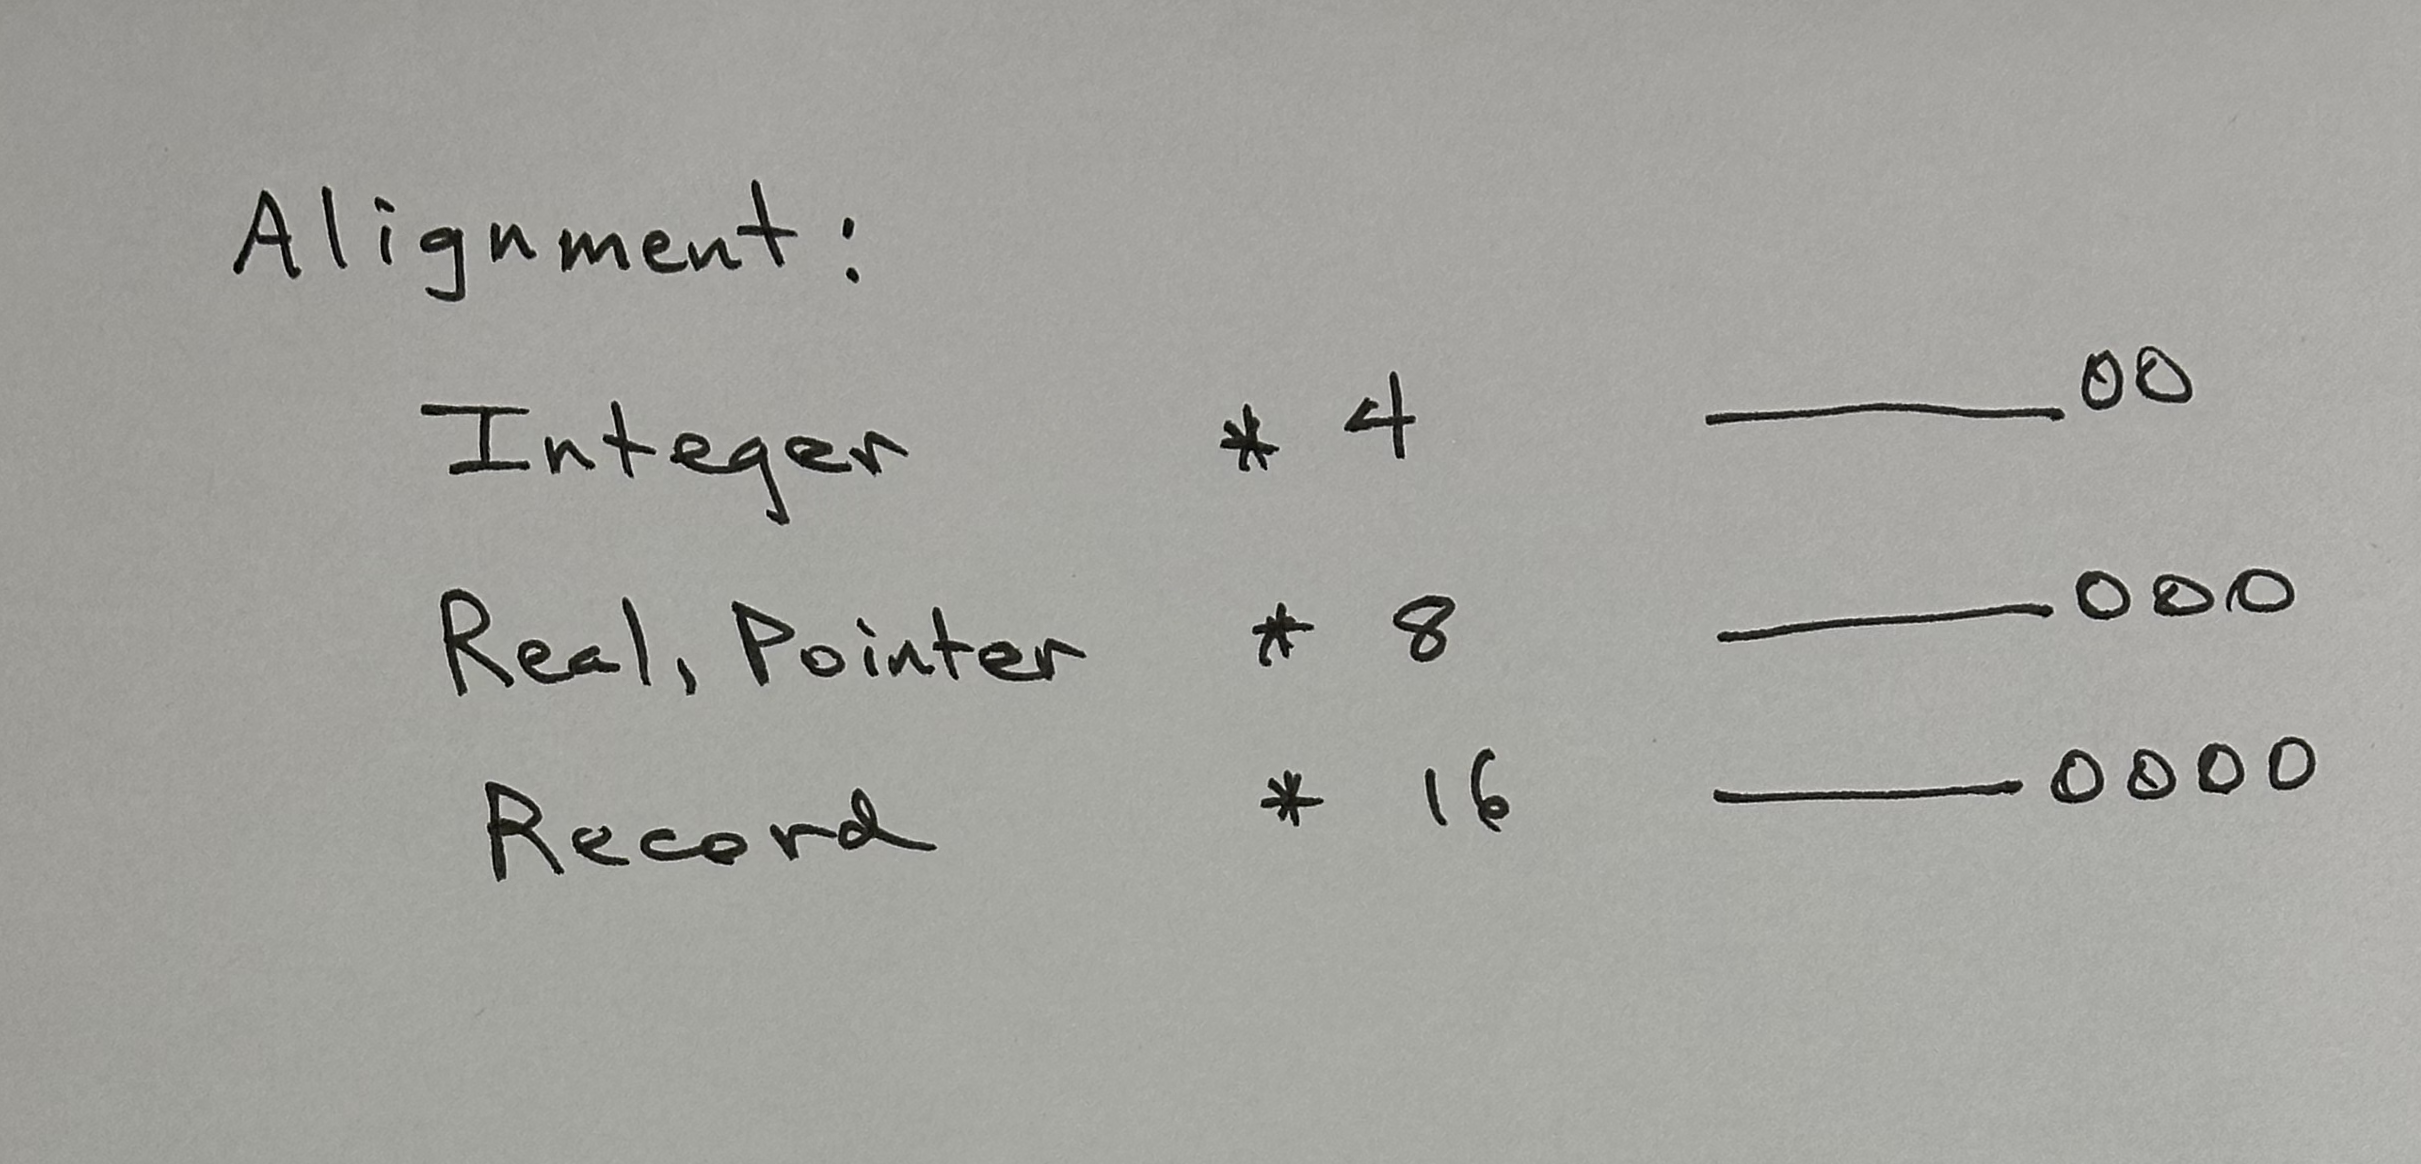 Alignment:
Integer * 4 ______00
Real, Pointer * 8 ______000
Record * 16 ______0000